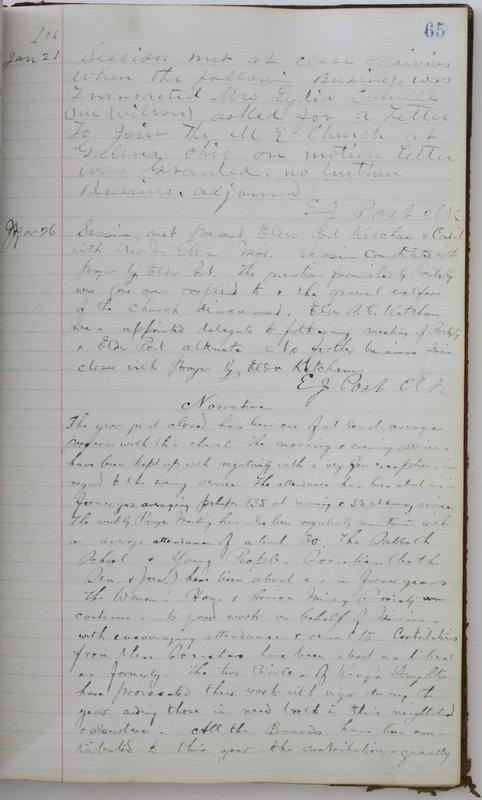 65
706
Jan 21 Session met at close of servics
when the following Business was
Transacted Mrs Lydia Cornell
(nee Wilson) asked for a Letter
To Join The M E Church at
Galena Ohio on motion Letter
was Granted. no further
Business. adjourned
E J Post Clk
Mar 26 Session met present Elders Post Ketcham &
with Rev Glenn Mod. Session constituted with
Prayer by Elder Post. The questions furnished by Presbytry
were gone over & replied to & the general welfare
of the church discussed. Elder Ketcham
was appointed delegate to forthcoming meeting of Presbytry
& Elder Post alternate. No further business
closed with Prayer by Elder Ketcham
E J Post Clk
Narrative
The year just closed has been one of at least average
progress with this church. The morning & evening services
have been kept up with regularity with a very few exceptions in
regard to the evening service. The attendance has been about as in
former yrs. averaging perhaps 135 at morning & 55 at evening service
The weekly Prayer Meeting has also been regularly maintained with
an average attendance of about 30. The Sabbath
School & Young Peoples Societies (both
Sen & Jun) have been about as in former years
The Women's Home & Foreign Miss'y Society
continues its good work on behalf of Missions
with encouraging attendance & results. Contributions
from these Societies have been about as liberal
as formerly. The two Circles of King's Daughters
have prosecuted their work with vigor during the
year aiding those in need both in this neighborhood
& elsewhere. All the Boards have been con-
tributed to this year the contributions generally